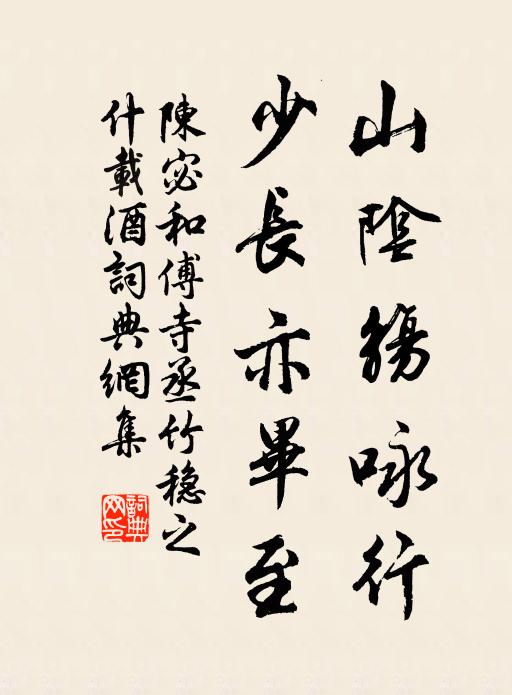 山陰觴咏行
少長亦畢至
陳宓和傅寺丞竹穏之
什載酒詞典網集
詞典網印